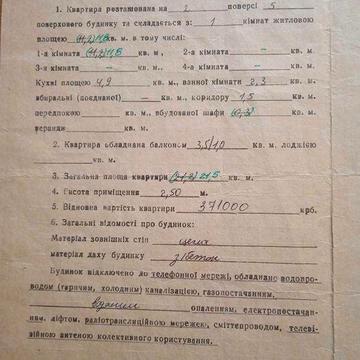 1. Квартира розташована на 2 поверсі 5
поверхового будинку та складається з: 1 кімнат житловою
площею кв. м, в тому числі:
1-а кімната кв. м, 2-а кімната — кв. м.
3-я кімната — кв. м., 4-а кімната — кв. м.
Кухні площею 4,9 кв. м., ванної кімнати 2,3 кв. м.
вбиральні (поєднаної) — кв. м., коридору 1,5 кв. м.
передпокою кв. м., вбудованої шафи (0,3) кв. м.
веранди кв. м.
2. Квартира обладнана балконом 3,5/1,0 кв. м. лоджією
кв. м.
3. Загальна площа квартири кв. м.
4. Висота приміщення 2,50 м.
5. Відновна вартість квартири 371000 крб.
6. Загальні відомості про будинок:
Матеріал зовнішніх стін цегла
матеріал даху будинку з/бетон
Будинок відключено до телефонної мережі, обладнано водопро-
водом (гарячим, холодним) каналізацією, газопостачанням,
опаленням, електропостачан-
ням, ліфтом, радіотрансляційною мережею, сміттепроводом, телеві-
війною антеною колективного користування.